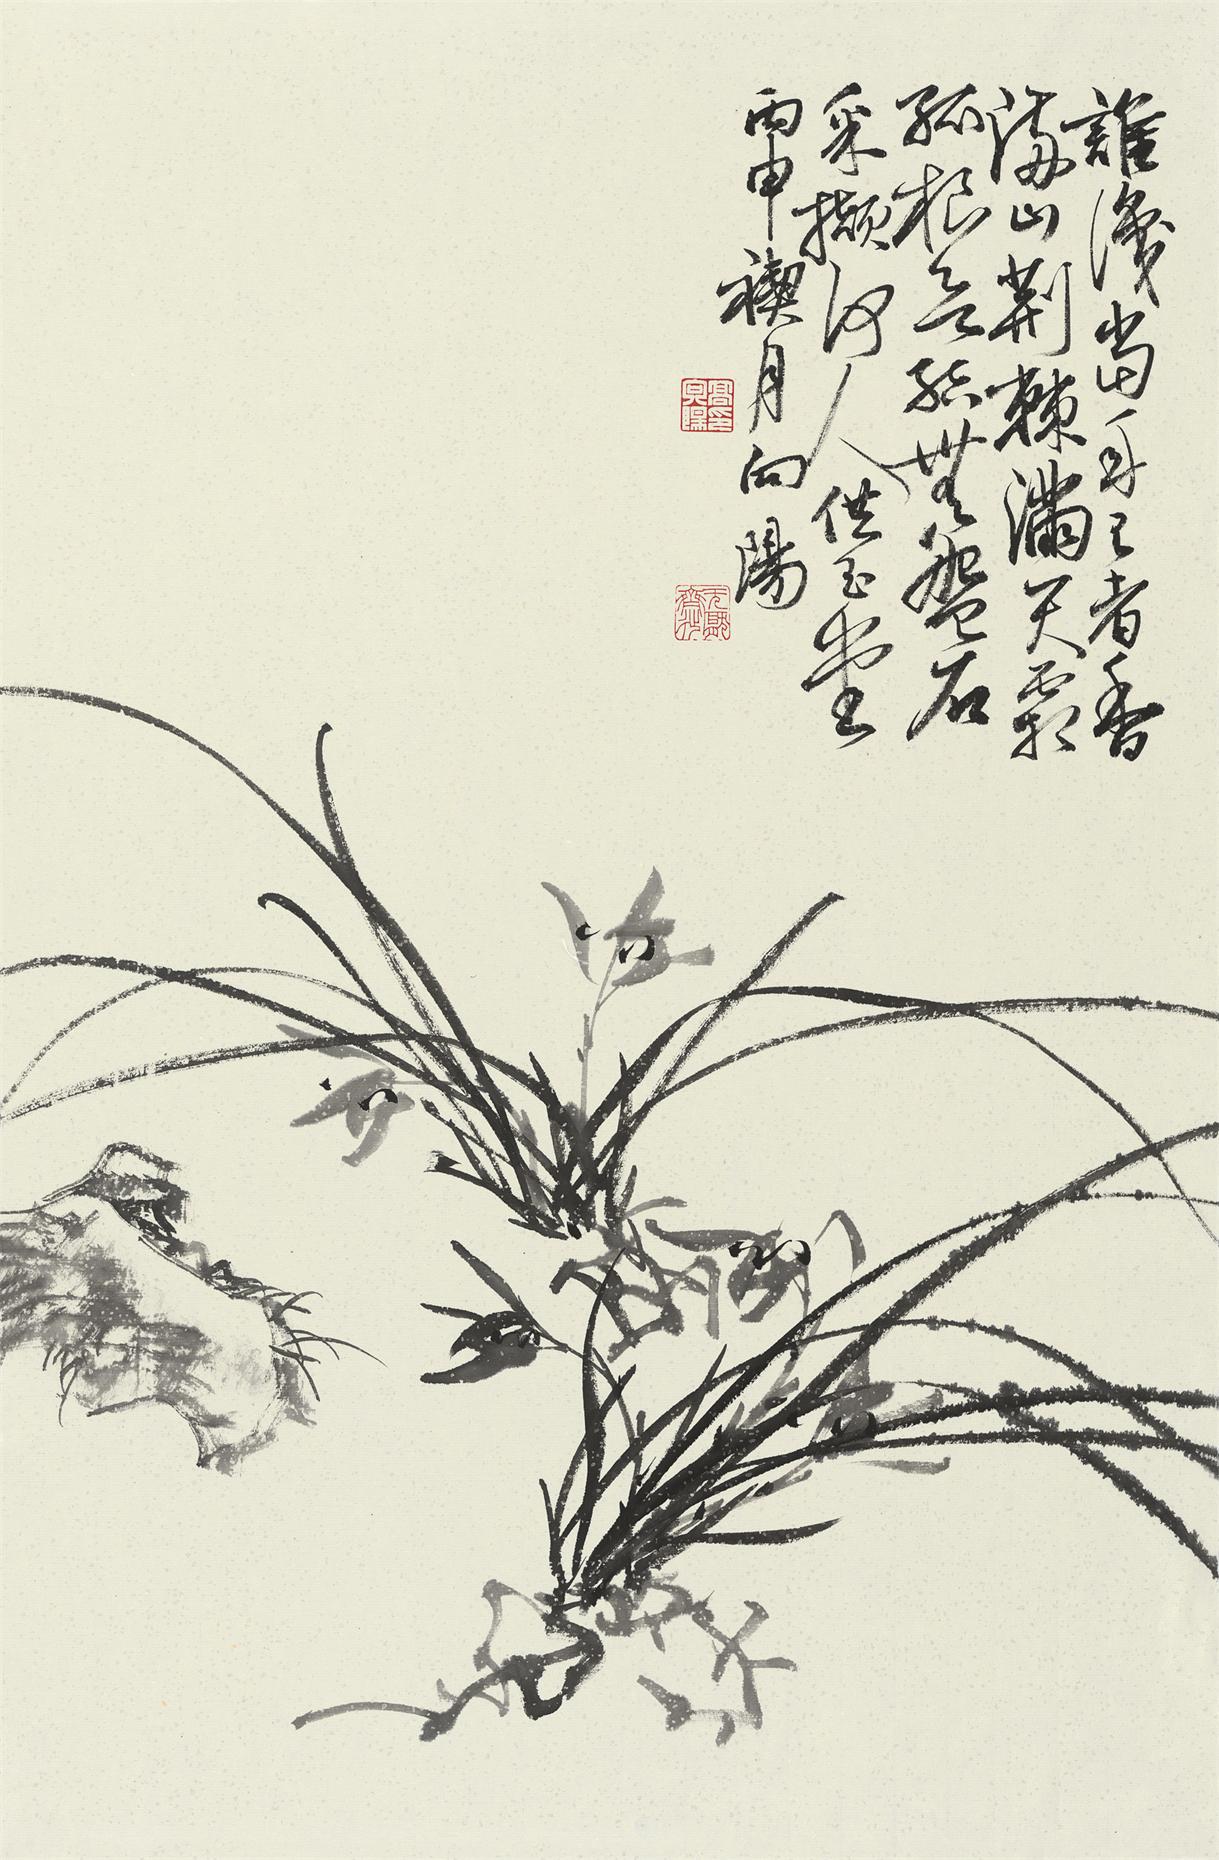 誰識當年王者香
滿山荆棘滿天霜
孤根無託無盤石
采擷何人供玉堂
丙申禊月向陽